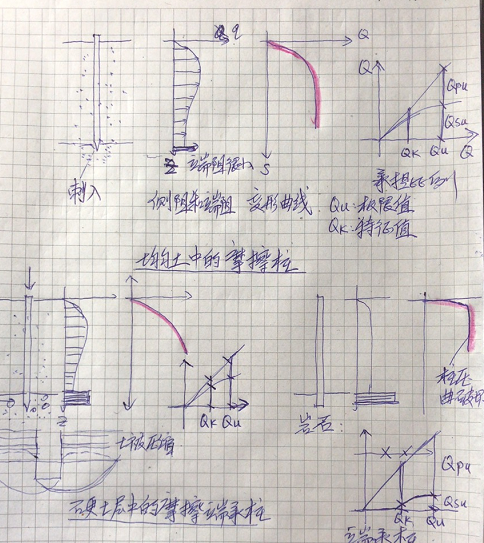 q
Q
Q
Qpu
Qsu
Qk Qu Q
Z 端阻很小 S
刺入
侧阻和端阻 变形曲线
承担比例
Qu:极限值
Qk:特征值
均匀土中的摩擦桩
Qk Qu
Z
土被压密
岩石:
桩压曲破坏
Qpu
Qsu
Qk Qu
硬土层中的摩擦端承桩
端承桩